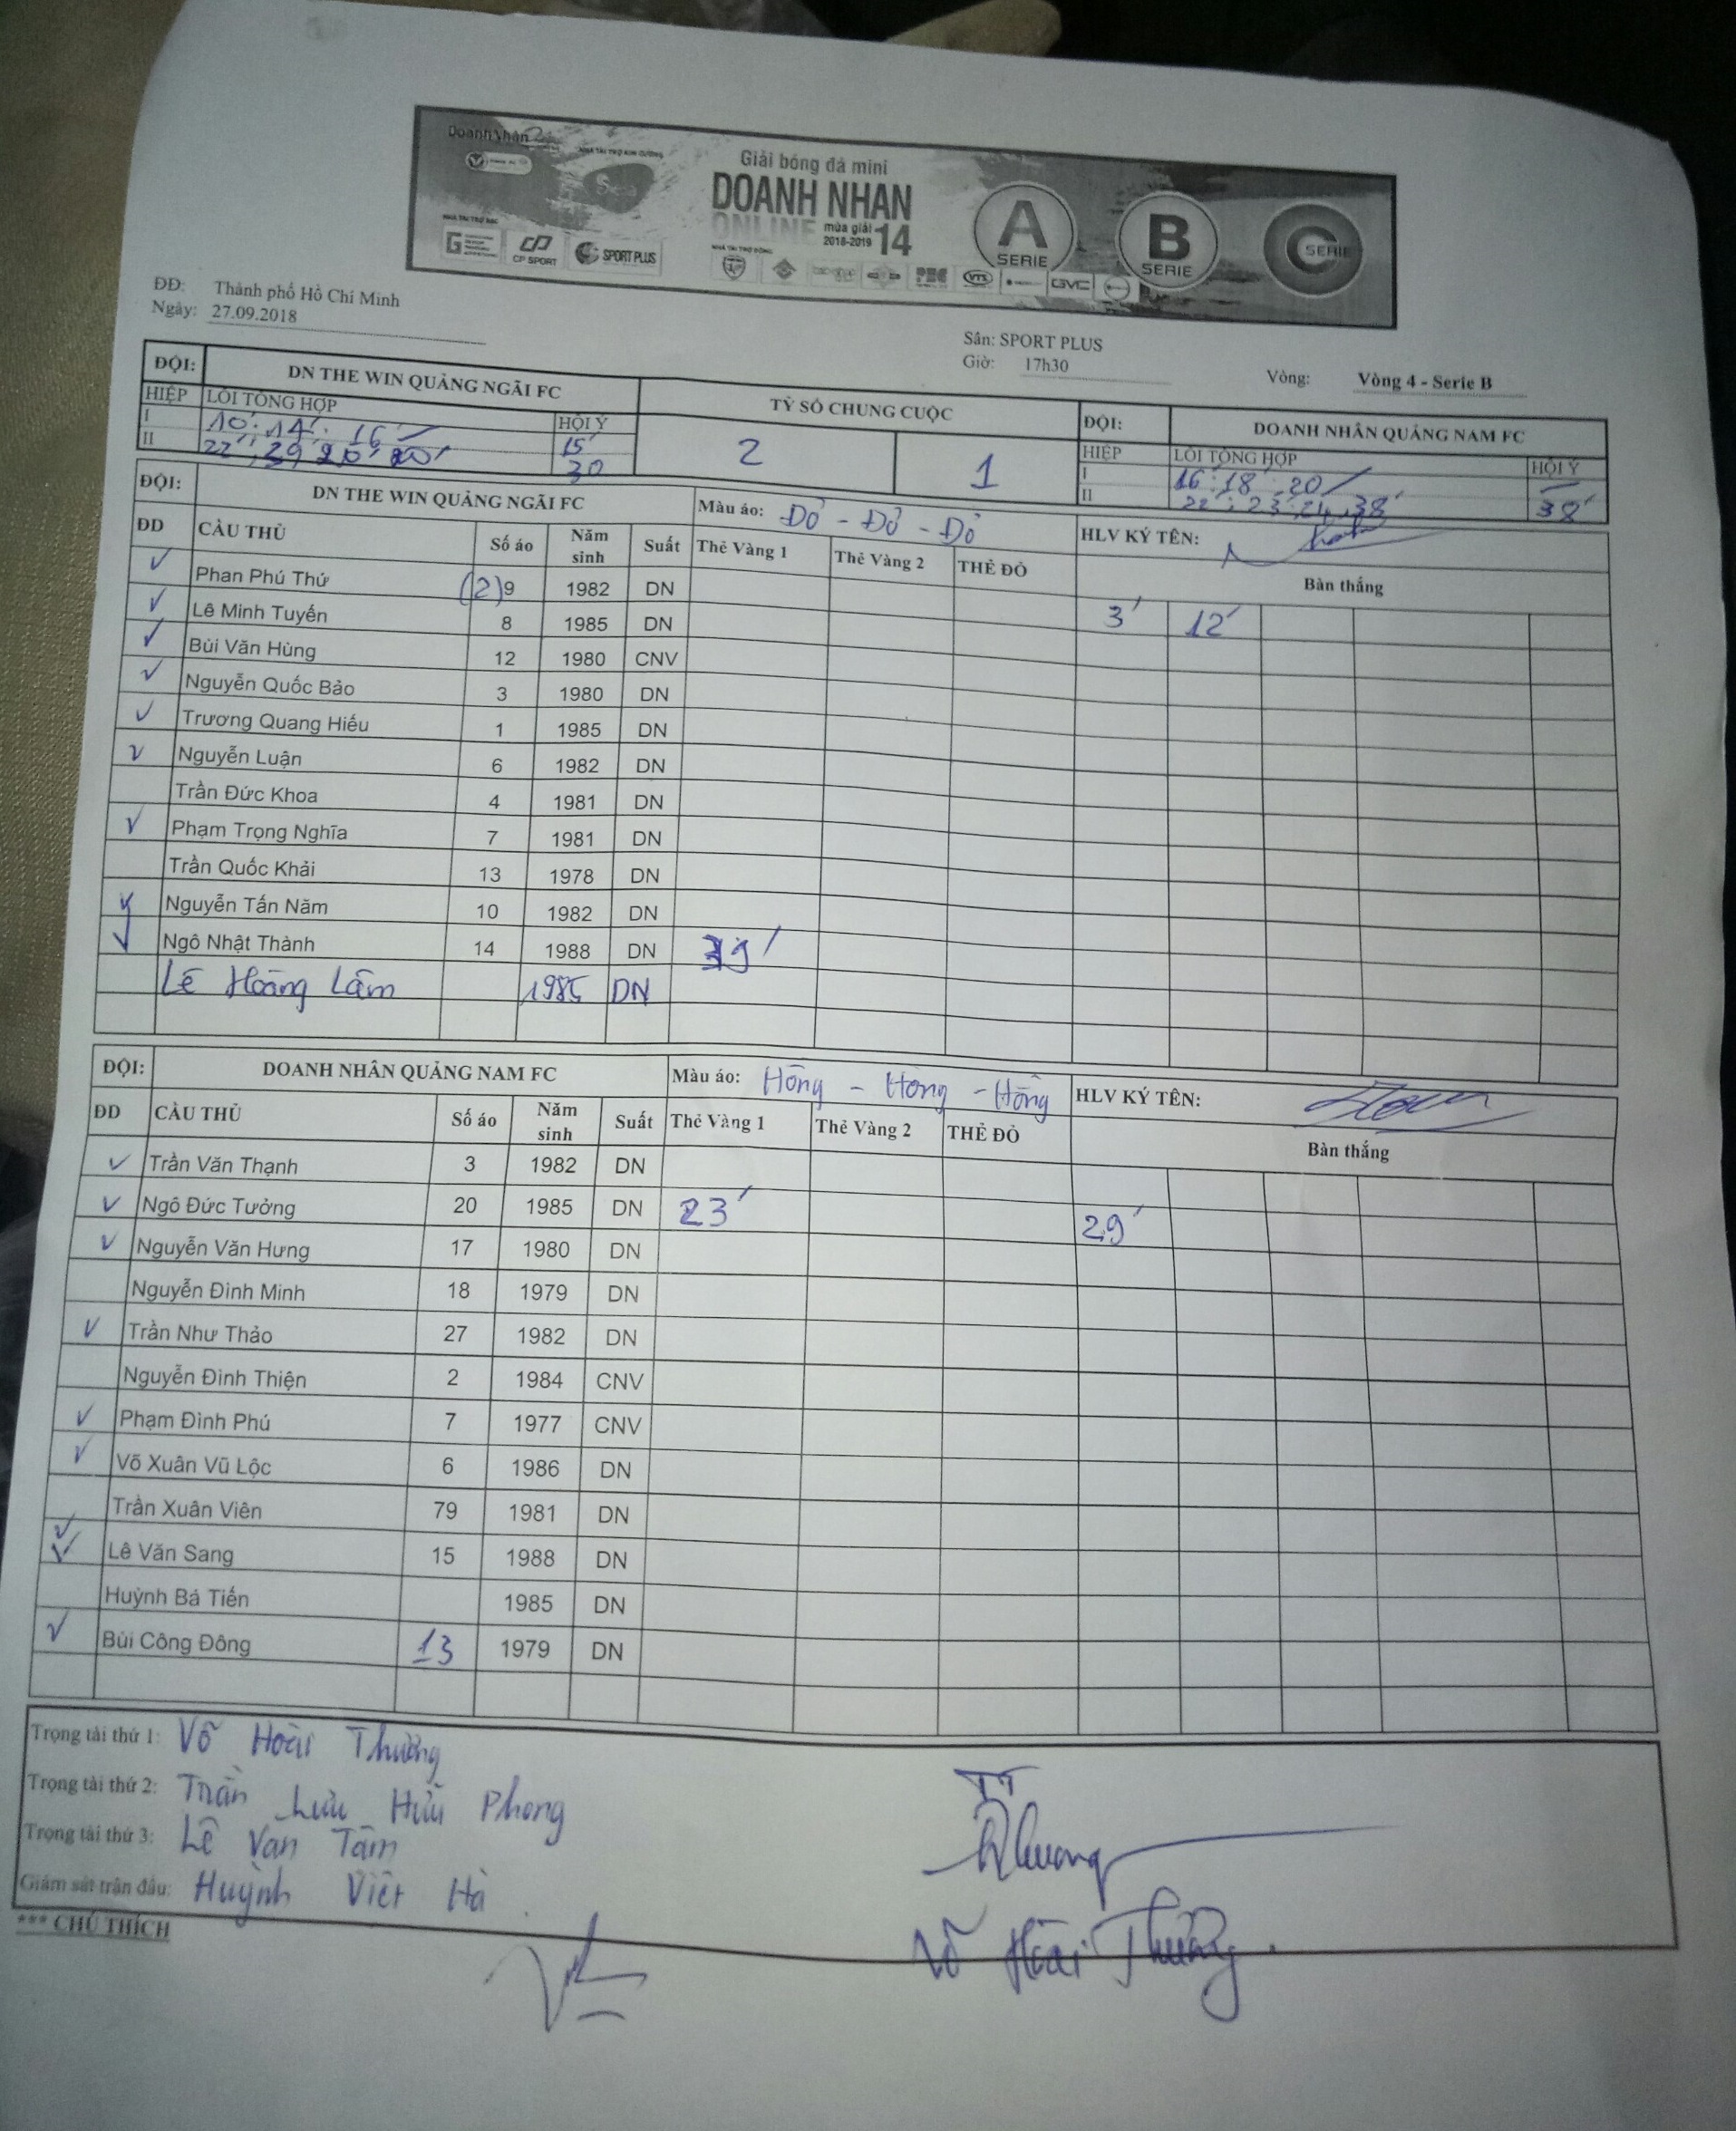 DoanhNhan
NHÀ TÀI TRỢ KIM CƯƠNG
Giải bóng đá mini
DOANH NHAN
ONLINE mùa giải 2018-2019 14
A SERIE
B SERIE
C SERIE
NHÀ TÀI TRỢ BẠC
CP SPORT
SPORT PLUS
NHÀ TÀI TRỢ ĐỒNG
VTS
GVC
ĐĐ: Thành phố Hồ Chí Minh
Ngày: 27.09.2018
Sân: SPORT PLUS
Giờ: 17h30
Vòng: Vòng 4 - Serie B
ĐỘI: DN THE WIN QUẢNG NGÃI FC TỶ SỐ CHUNG CUỘC ĐỘI: DOANH NHÂN QUẢNG NAM FC
HIỆP LỖI TỔNG HỢP HỘI Ý 2 1 HIỆP LỖI TỔNG HỢP HỘI Ý
I 10' 14' 16' 15' I 16' 18' 20'
II 22' 30 II 22' 23' 24' 38' 38'
ĐỘI: DN THE WIN QUẢNG NGÃI FC Màu áo: Đỏ - Đỏ - Đỏ HLV KÝ TÊN:
ĐD CẦU THỦ Số áo Năm sinh Suất Thẻ Vàng 1 Thẻ Vàng 2 THẺ ĐỎ Bàn thắng
✓ Phan Phú Thứ (2)9 1982 DN 3' 12'
✓ Lê Minh Tuyến 8 1985 DN
✓ Bùi Văn Hùng 12 1980 CNV
✓ Nguyễn Quốc Bảo 3 1980 DN
✓ Trương Quang Hiếu 1 1985 DN
✓ Nguyễn Luận 6 1982 DN
Trần Đức Khoa 4 1981 DN
✓ Phạm Trọng Nghĩa 7 1981 DN
Trần Quốc Khải 13 1978 DN
✓ Nguyễn Tấn Năm 10 1982 DN
✓ Ngô Nhật Thành 14 1988 DN 39'
Lê Hoàng Lâm 1985 DN
ĐỘI: DOANH NHÂN QUẢNG NAM FC Màu áo: Hồng - Hồng - Hồng HLV KÝ TÊN:
ĐD CẦU THỦ Số áo Năm sinh Suất Thẻ Vàng 1 Thẻ Vàng 2 THẺ ĐỎ Bàn thắng
✓ Trần Văn Thạnh 3 1982 DN
✓ Ngô Đức Tưởng 20 1985 DN 23' 29'
✓ Nguyễn Văn Hưng 17 1980 DN
Nguyễn Đình Minh 18 1979 DN
✓ Trần Như Thảo 27 1982 DN
Nguyễn Đình Thiện 2 1984 CNV
✓ Phạm Đình Phú 7 1977 CNV
✓ Võ Xuân Vũ Lộc 6 1986 DN
Trần Xuân Viên 79 1981 DN
✓ Lê Văn Sang 15 1988 DN
Huỳnh Bá Tiến 1985 DN
✓ Bùi Công Đông 13 1979 DN
Trọng tài thứ 1: Võ Hoài Thường
Trọng tài thứ 2: Trần Lưu Hữu Phong
Trọng tài thứ 3: Lê Văn Tâm
Giám sát trận đấu: Huỳnh Việt Hà
TT
Võ Hoài Thường
*** CHÚ THÍCH